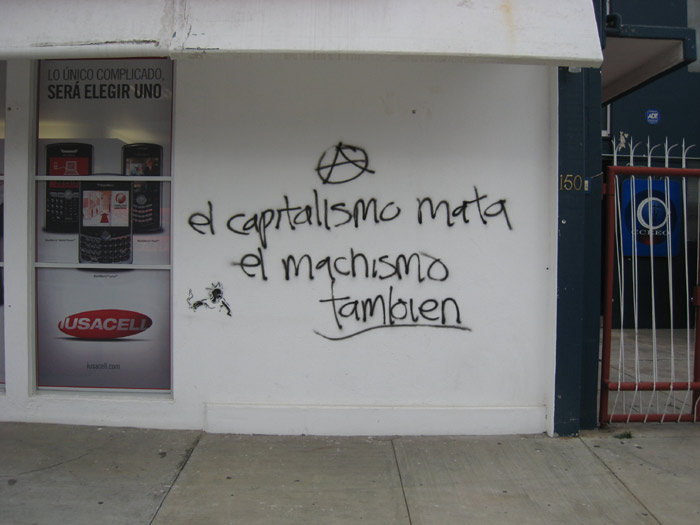 LO ÚNICO COMPLICADO,
SERÁ ELEGIR UNO
IUSACELL
iusacell.com
el capitalismo mata
el machismo
tambien
150
ADT